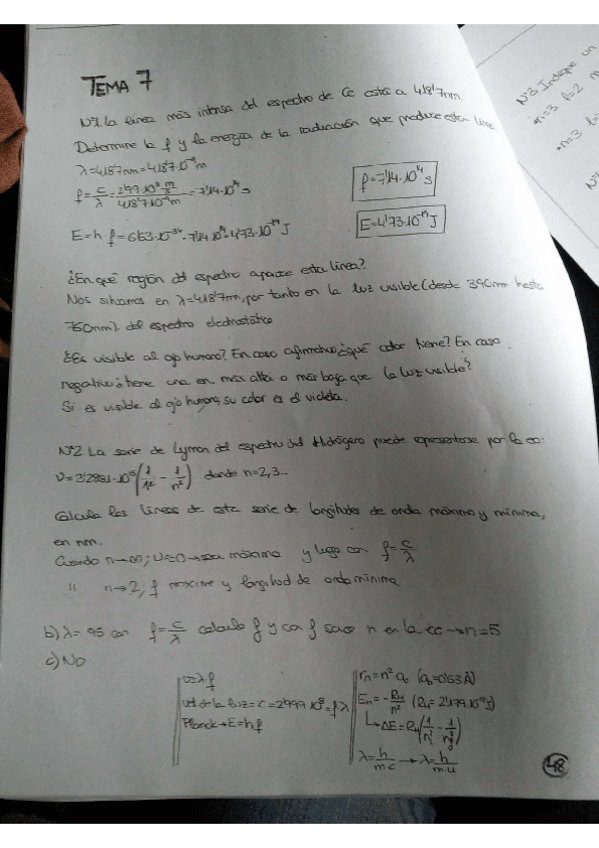 TEMA 7
Nº1. La línea más intensa del espectro de Ce está a 418'7nm.
Determine la f y la energía de la radiación que produce esta línea
λ=418'7nm=418'7·10⁻⁹m
f=c/λ= =7'14·10¹⁴s
f=7'14·10¹⁴s
E=h·f=6'63·10⁻³⁴·7'14·10¹⁴=4'73·10⁻¹⁹J
E=4'73·10⁻¹⁹J
¿En qué región del espectro aparece esta línea?
Nos situamos en λ=418'7nm, por tanto en la luz visible (desde 390nm hasta
760nm). del espectro electrostático
¿Es visible al ojo humano? En caso afirmativo ¿qué color tiene? En caso
negativo ¿tiene una en. más alta o más baja que la luz visible?
Sí es visible al ojo humano, su color es el violeta.
Nº2. La serie de Lyman del espectro del Hidrógeno puede representarse por la ec:
ν=3'2881·10¹⁵(1/1² - 1/n²) donde n=2,3...
Calcula las líneas de esta serie de longitudes de onda máxima y mínima,
en nm.
Cuando n→∞; ν= máxima y luego con f=c/λ
" n→2; f y longitud de onda mínima
b) λ=95 con f=c/λ calculo f y con f saco n en la ec →n=5
c) No
v=λf
vel de la luz=c=2'999·10⁸=f·λ
Planck→E=hf
rₙ=n²a₀ (a₀=0'53Å)
Eₙ=-R_H/n² (R_H=2'179·10⁻¹⁸J)
↳ΔE=R_H(1/nᵢ² - 1/n_f²)
λ=h/m·c →λ=h/m·u
48
Nº3. Indique un
•n=3 l=2 m
•n=3 l=
Nº4